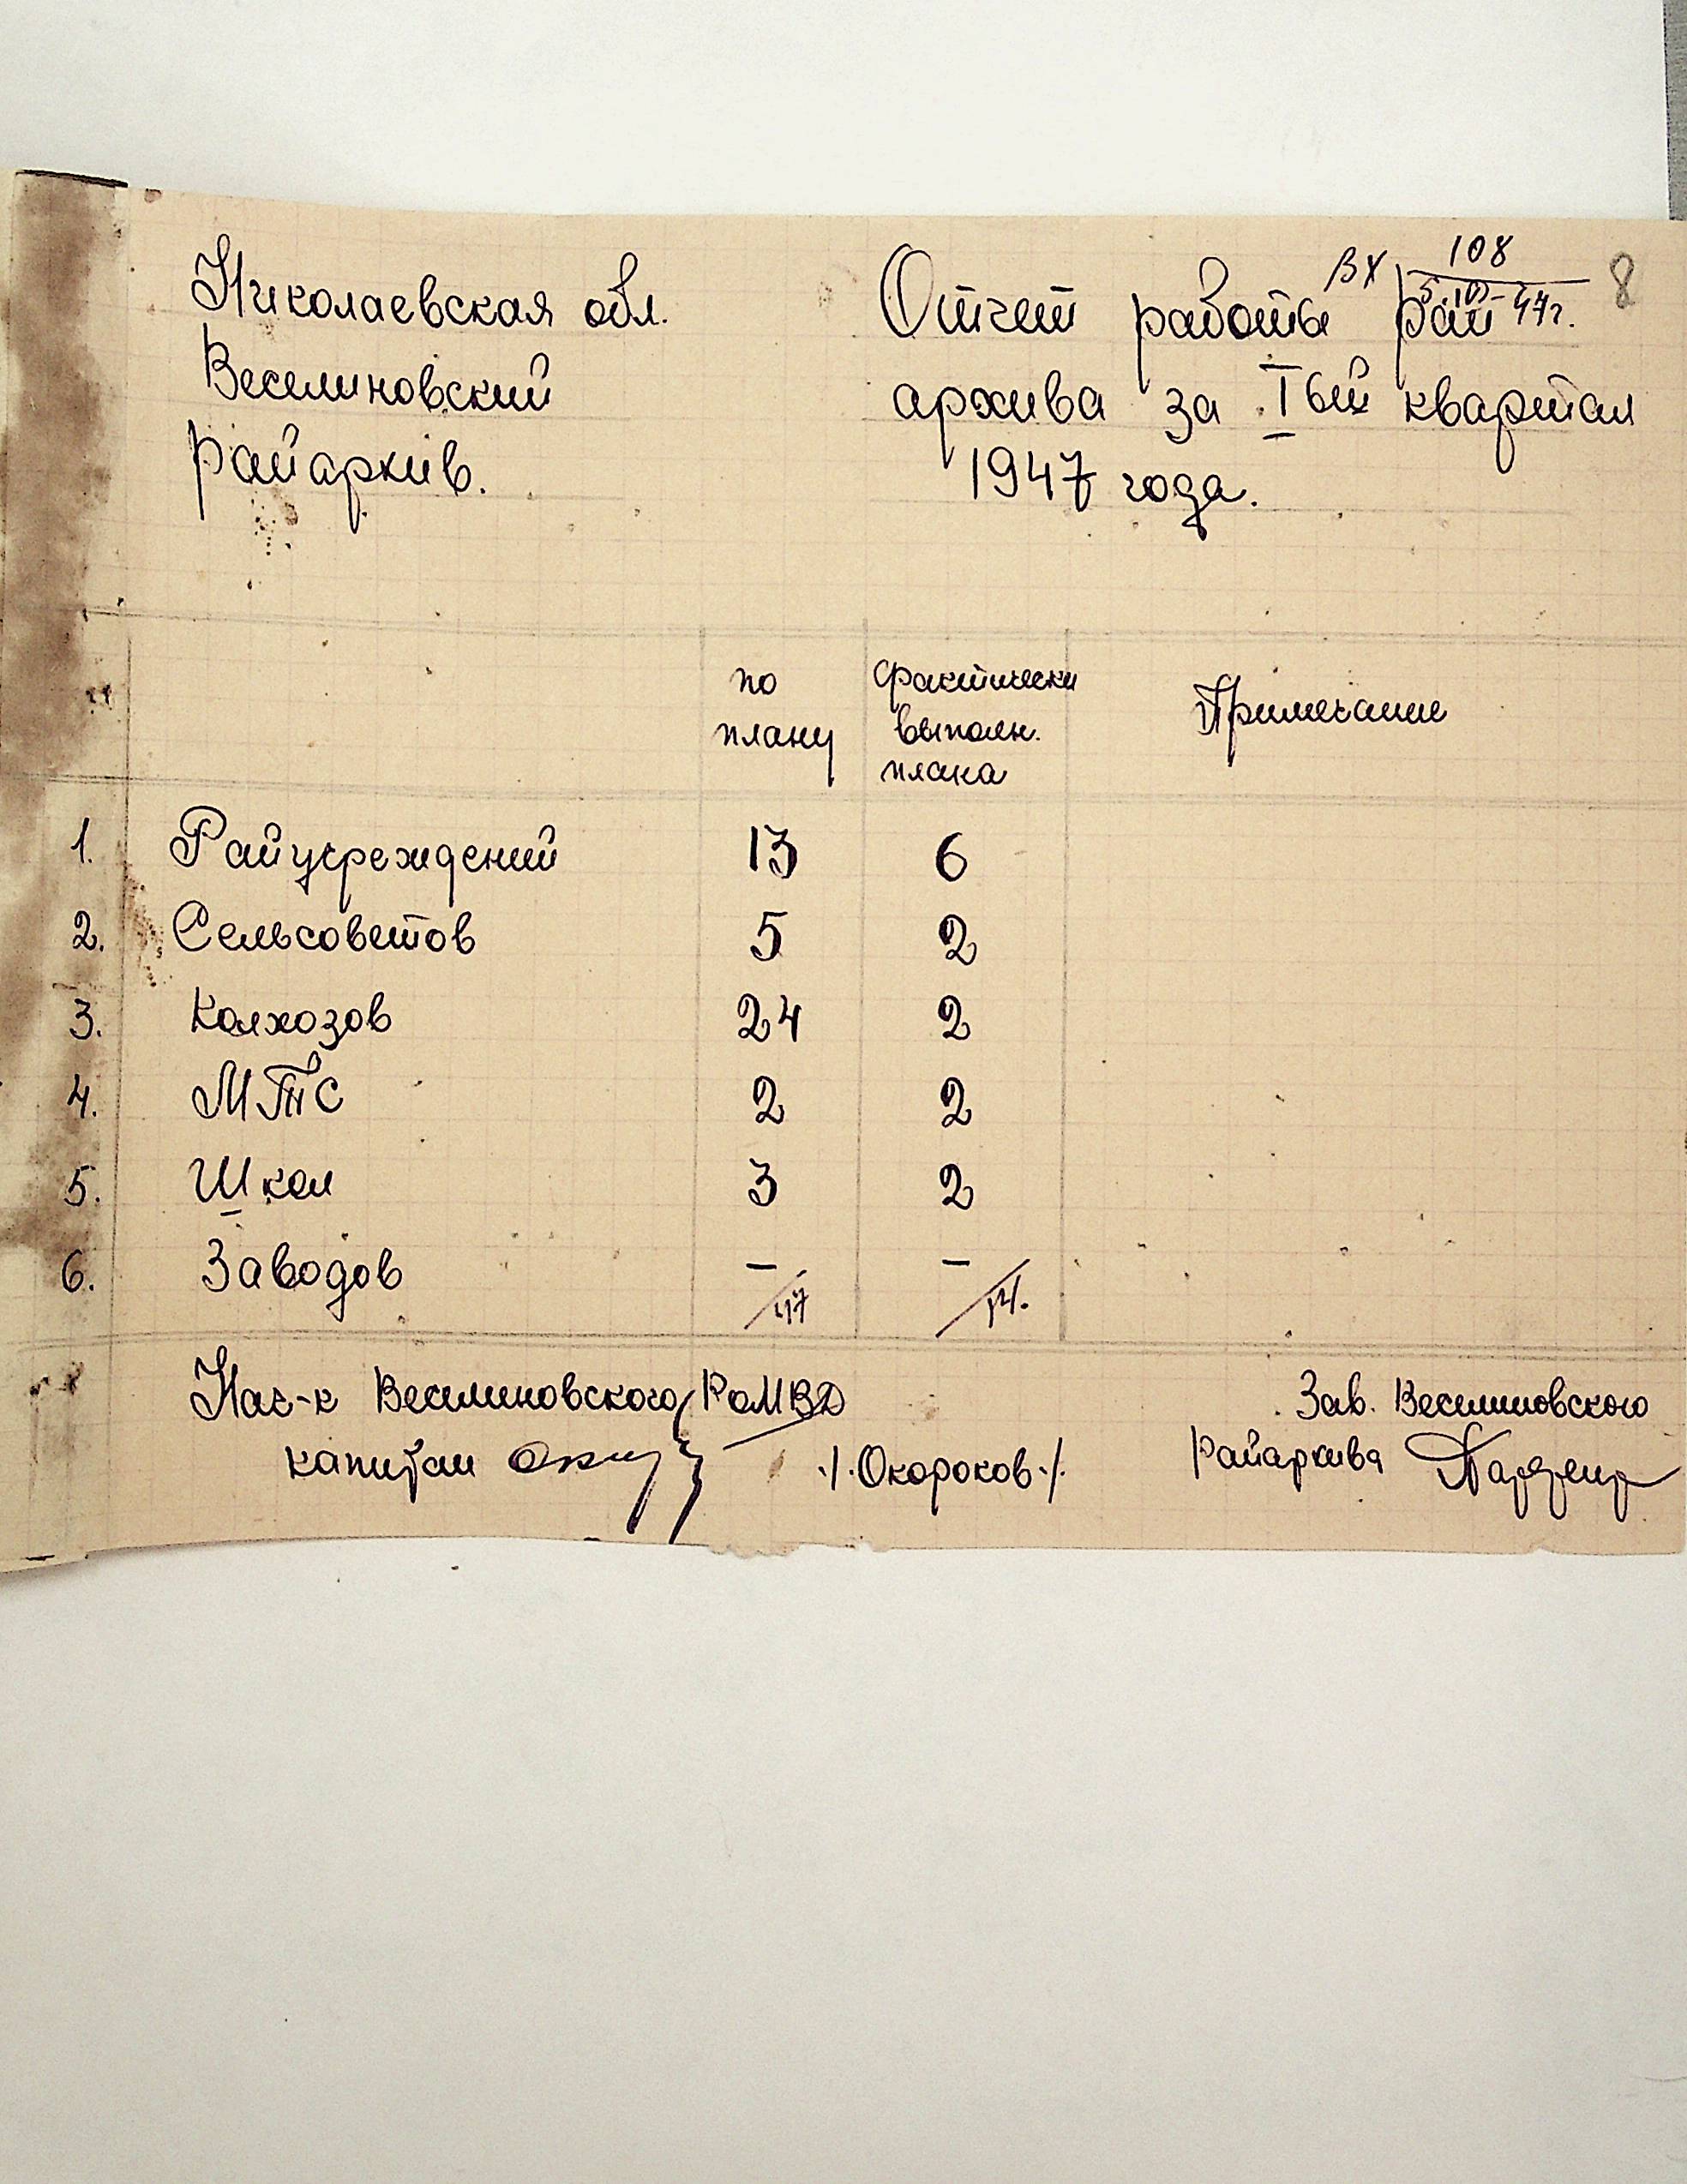 Николаевская обл.
Веселиновский
Райархив.
вх 108
8
Отчет работы рай
архива за Iый квартал
1947 года.
по плану
фактически выполн. плана
Примечание
1. Райучреждений 13 6
2. Сельсоветов 5 2
3. Колхозов 24 2
4. МТС 2 2
5. Школ 3 2
6. Заводов – –
47 14.
Нач-к Веселиновского РОМВД
капитан /Окороков/
Зав. Веселиновского
Райархива